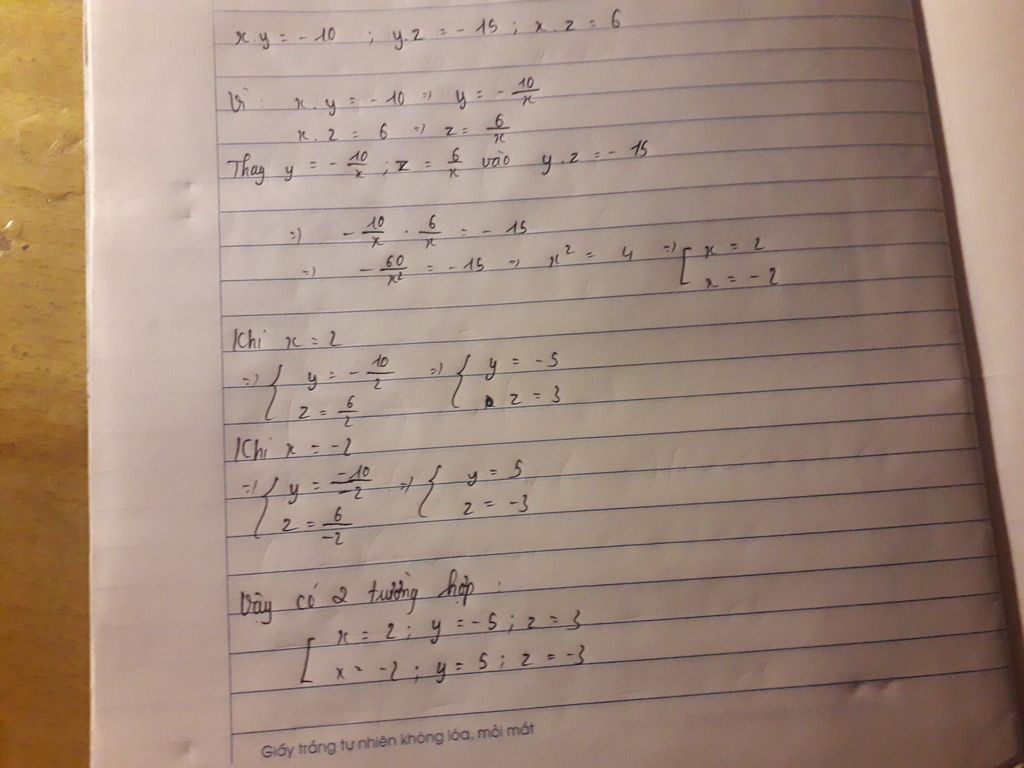 x.y = -10 ; y.z = -15 ; x.z = 6
Vì: x.y = -10 => y = -10/x
x.z = 6 => z = 6/x
Thay y = -10/x ; z = 6/x vào y.z = -15
=> -10/x . 6/x = -15
=> -60/x² = -15 => x² = 4 => [ x = 2
x = -2
Khi x = 2
=> { y = -10/2 => { y = -5
z = 6/2 z = 3
Khi x = -2
=> { y = -10/-2 => { y = 5
z = 6/-2 z = -3
Vậy có 2 tường hợp :
[ x = 2 ; y = -5 ; z = 3
x = -2 ; y = 5 ; z = -3
Giấy trắng tự nhiên không lóa, mỏi mắt